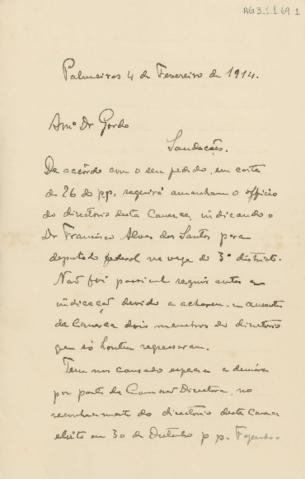 AG3.1.1 69 1
Palmeiras 4 de Fevereiro de 1914.
Amº Dr Gordo
Saudação.
De accôrdo com o seu pedido, em carta
de 26 do pp. seguirá amanham o officio
do directorio desta Comarca, indicando o
Dr Francisco Alves dos Santos para
deputado federal na vaga do 3º districto.
Não foi possivel seguir antes a
indicação devido a acharem-se ausentes
da Comarca dois membros do directorio
que só hontem regressaram.
Tem nos causado especie a demora
por parte da Commissão Directora, no
reconhecimento do directorio desta Comarca
eleito em 30 de Outubro p p.